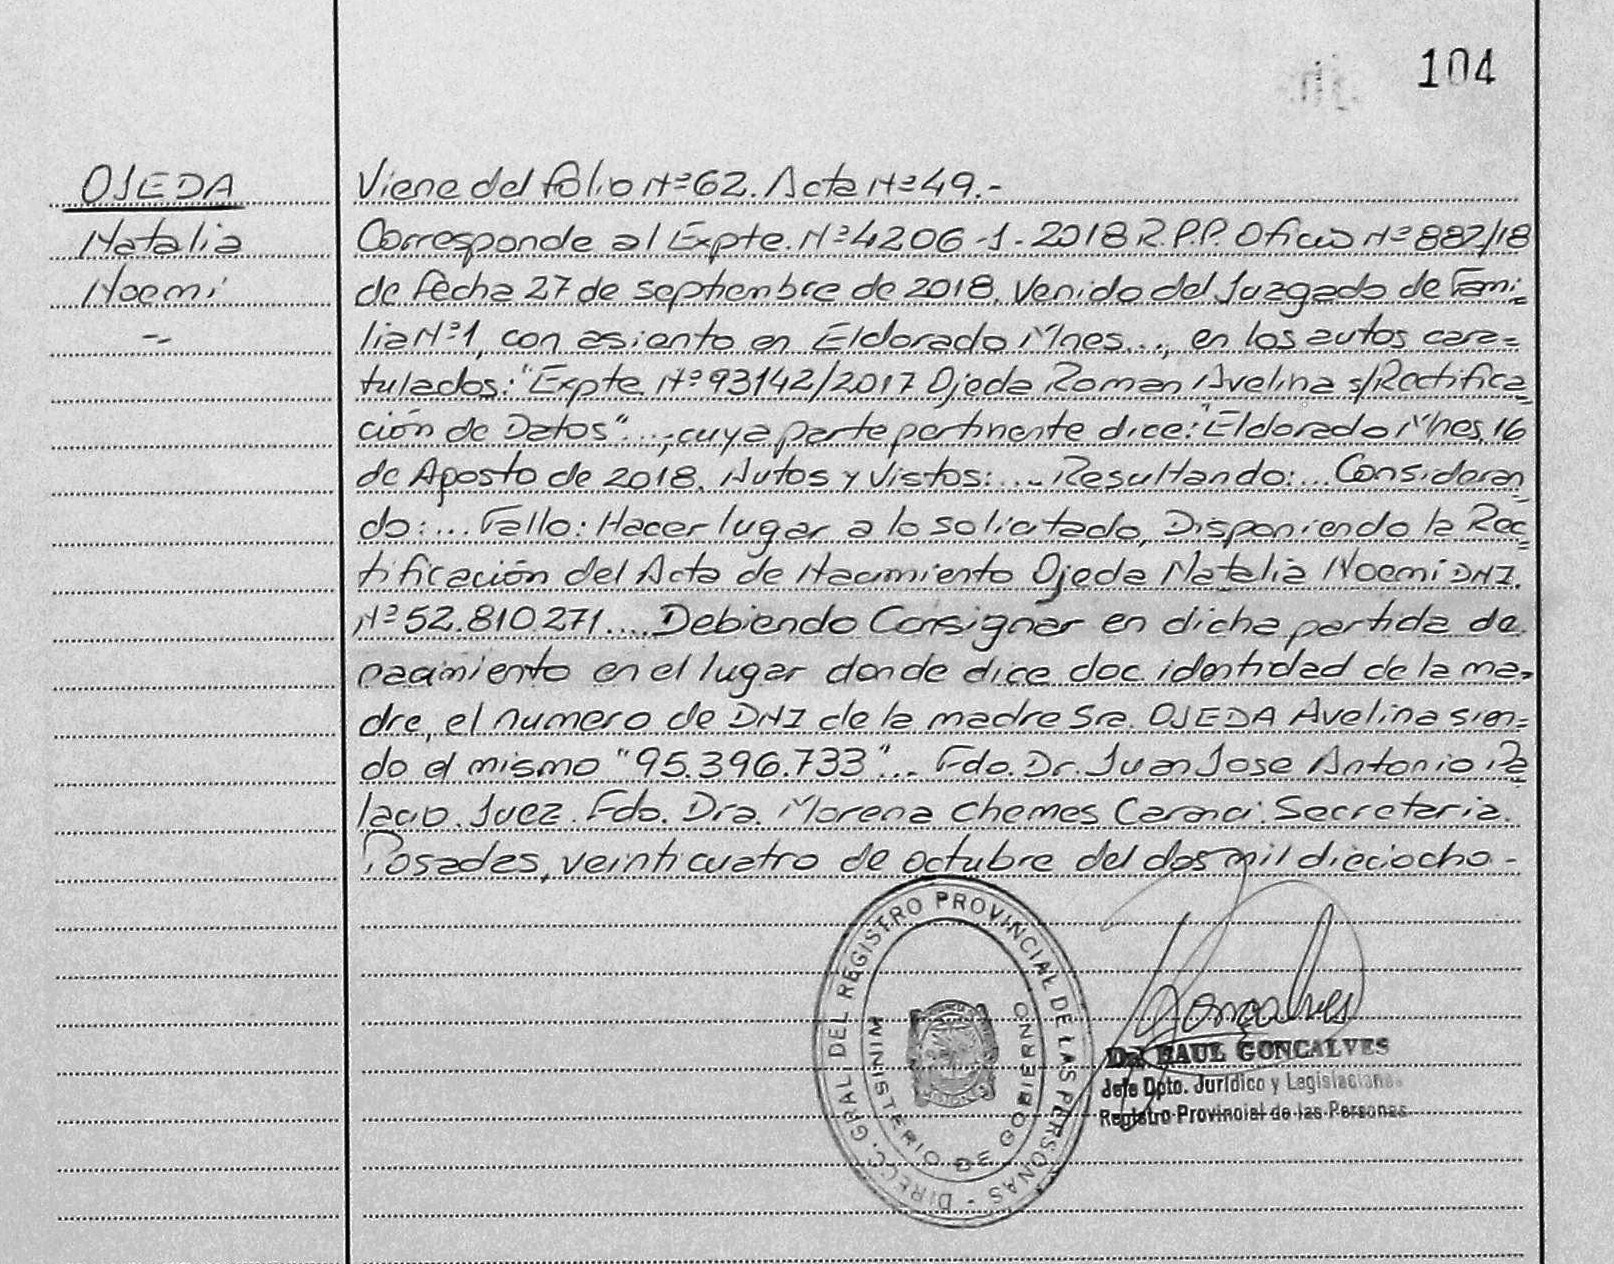 104
OJEDA
Natalia
Noemi
--
Viene del folio Nº 62. Acta Nº 49.-
Corresponde al Expte. Nº 4206-1-2018 R.P.P. Oficio Nº 882/18
de fecha 27 de septiembre de 2018. Venido del Juzgado de Fami-
lia Nº 1, con asiento en Eldorado Mnes..., en los autos cara=
tulados: "Expte. Nº 93142/2017 Ojeda Roman Avelina s/Rectifica=
ción de Datos"...; cuya parte pertinente dice: "Eldorado Mnes, 16
de Agosto de 2018. Autos y Vistos:.... Resultando:... Consideran=
do:... Fallo: Hacer lugar a lo solicitado, Disponiendo la Rec=
tificación del Acta de Nacimiento Ojeda Natalia Noemi DNI.
Nº 52.810.271.... Debiendo Consignar en dicha partida de
nacimiento en el lugar donde dice doc. identidad de la ma=
dre, el numero de DNI de la madre Sra. OJEDA Avelina sien=
do el mismo "95.396.733"... Fdo. Dr. Juan Jose Antonio Pa=
lacio. Juez. Fdo. Dra. Morena Chemes Caranci. Secretaria.
Posadas, veinticuatro de octubre del dos mil dieciocho -
DIRECC. GRAL. DEL REGISTRO PROVINCIAL DE LAS PERSONAS -
MINISTERIO DE GOBIERNO
Gonçalves
Dr. RAUL GONCALVES
Jefe Dpto. Jurídico y Legislaciones
Registro Provincial de las Personas